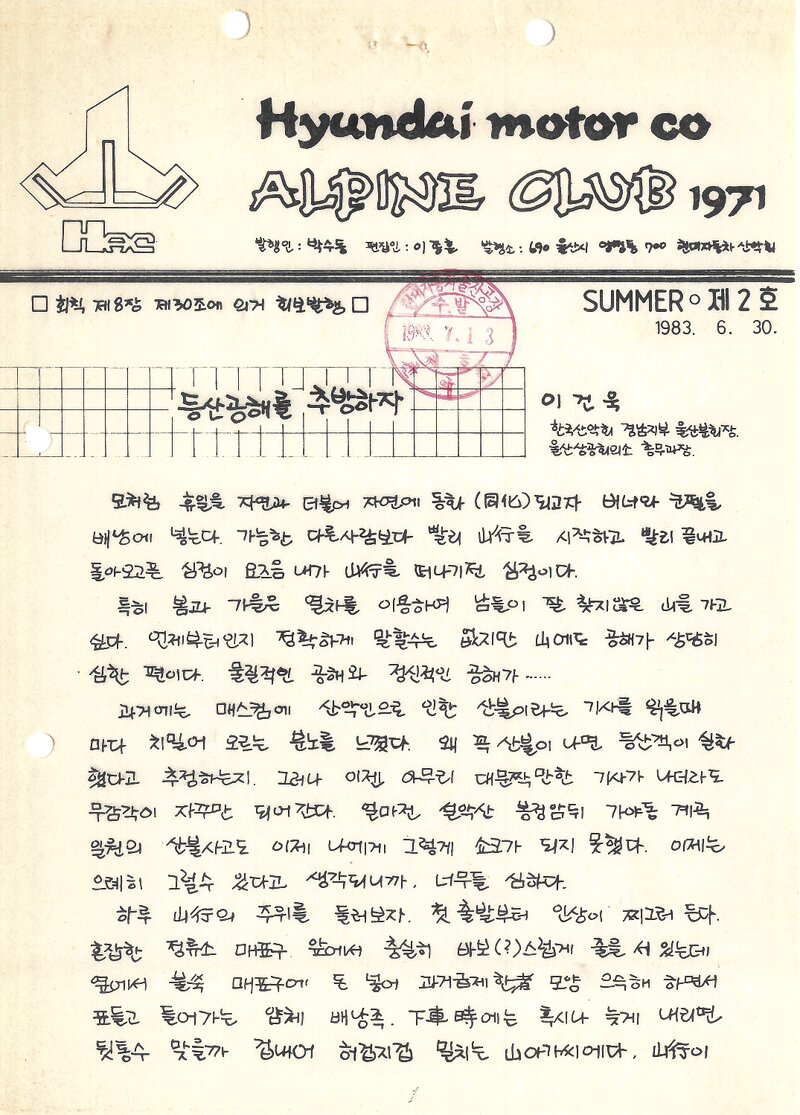 Hyundai motor co
ALPINE CLUB 1971
HAC
발행인 : 박수동 편집인 : 이종호 발행소 : 690 울산시 양정동 700 현대자동차 산악회
□ 회칙 제8장 제30조에 의거 회보발행 □
SUMMER ○ 제2호
1983. 6. 30.
수.발
1983. 7. 1 3
등산공해를 추방하자
이 건 욱
한국산악회 경남지부 울산분회장.
울산상공회의소 총무과장.
모처럼 휴일을 자연과 더불어 자연에 동화 (同化) 되고자 버너와 코펠을
배낭에 넣는다. 가능한 다른사람보다 빨리 山行을 시작하고 빨리 끝내고
돌아오고픈 심정이 요즈음 내가 山行을 떠나기전 심정이다.
특히 봄과 가을은 열차를 이용하여 남들이 잘 찾지않은 山을 가고
싶다. 언제부터인지 정확하게 말할수는 없지만 山에도 공해가 상당히
심한 편이다. 물질적인 공해와 정신적인 공해가 ......
과거에는 매스컴에 산악인으로 인한 산불이라는 기사를 읽을때
마다 치밀어 오르는 분노를 느꼈다. 왜 꼭 산불이 나면 등산객이 실화
했다고 추정하는지. 그러나 이젠 아무리 대문짝만한 기사가 나더라도
무감각이 자꾸만 되어간다. 얼마전 설악산 봉정암뒤 가야동 계곡
일원의 산불사고도 이제 나에게 그렇게 쇼크가 되지 못했다. 이제는
으례히 그럴수 있다고 생각되니까. 너무들 심하다.
하루 山行의 주위를 둘러보자. 첫 출발부터 인상이 찌그러 든다.
혼잡한 정류소 매표구 앞에서 충실히 바보(?)스럽게 줄을 서 있는데
옆에서 불쑥 매표구에 돈 넣어 과거급제한者 모양 으슥해 하면서
표들고 들어가는 얌체 배낭족. 下車時에는 혹시나 늦게 내리면
뒷통수 맞을까 겁내어 허겁지겁 밀치는 山아가씨에다. 山行이
1